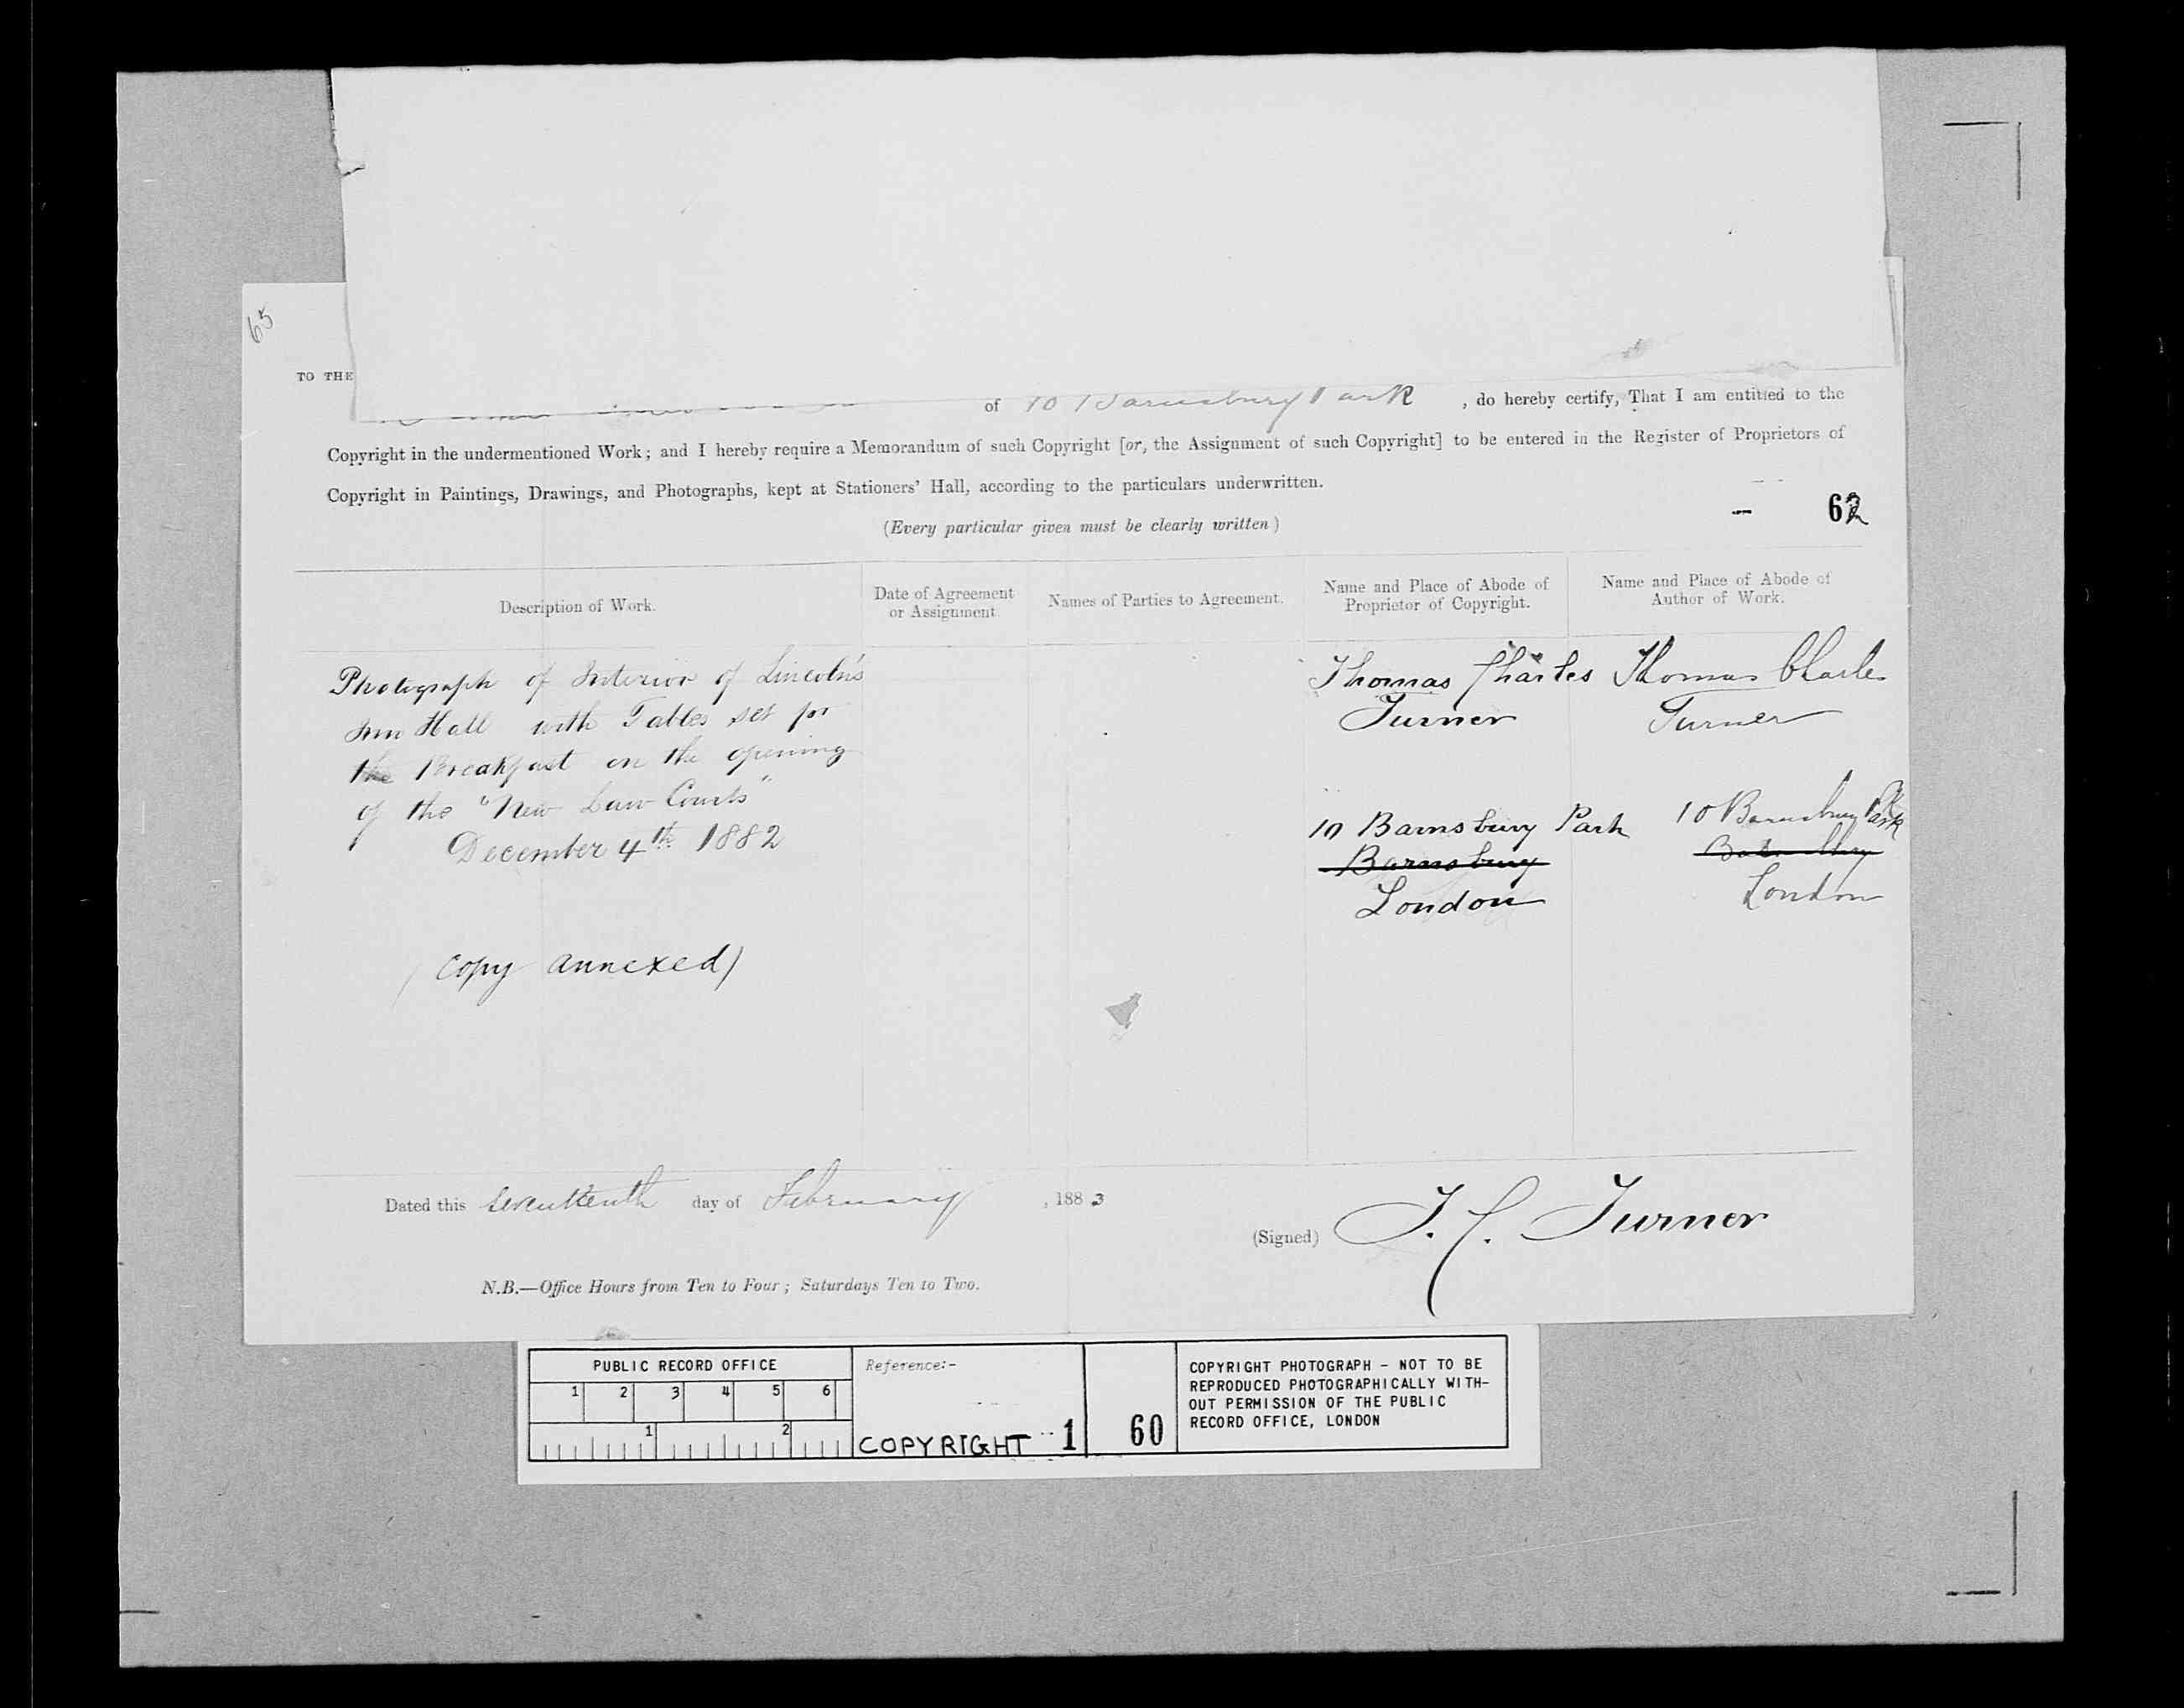 65
TO THE
of 10 Barnsbury Park , do hereby certify, That I am entitled to the
Copyright in the undermentioned Work; and I hereby require a Memorandum of such Copyright [or, the Assignment of such Copyright] to be entered in the Register of Proprietors of
Copyright in Paintings, Drawings, and Photographs, kept at Stationers' Hall, according to the particulars underwritten.
(Every particular given must be clearly written)
62
Description of Work.
Date of Agreement
or Assignment
Names of Parties to Agreement.
Name and Place of Abode of
Proprietor of Copyright.
Name and Place of Abode of
Author of Work.
Photograph of Interior of Lincoln's
Inn Hall with Tables set for
the Breakfast on the opening
of the "New Law Courts"
December 4th 1882
(copy annexed)
Thomas Charles
Turner
10 Barnsbury Park
Barnsbury
London
Thomas Charles
Turner
10 Barnsbury Park
Barnsbury
London
Dated this Seventeenth day of February , 1883
(Signed) T. C. Turner
N.B.—Office Hours from Ten to Four; Saturdays Ten to Two.
PUBLIC RECORD OFFICE
1 2 3 4 5 6
1 2
Reference:-
COPYRIGHT 1
60
COPYRIGHT PHOTOGRAPH - NOT TO BE
REPRODUCED PHOTOGRAPHICALLY WITH-
OUT PERMISSION OF THE PUBLIC
RECORD OFFICE, LONDON